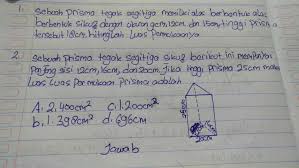 1. Sebuah Prisma tegak segitiga memiliki alas berbentuk alas
berbentuk siku² dengan ukuran 9cm, 12cm dan 15cm tinggi Prisma
tersebut 18cm. hitunglah luas Permukaannya
2. Sebuah Prisma tegak segitiga siku² berikut ini mempunyai
Panjang sisi 12cm, 16cm, dan 20cm, Jika tinggi Prisma 25cm maka
luas Permukaan Prisma adalah
A. 2.400cm² c. 1.200cm²
b. 1.398cm² d. 696cm
20cm
Jawab